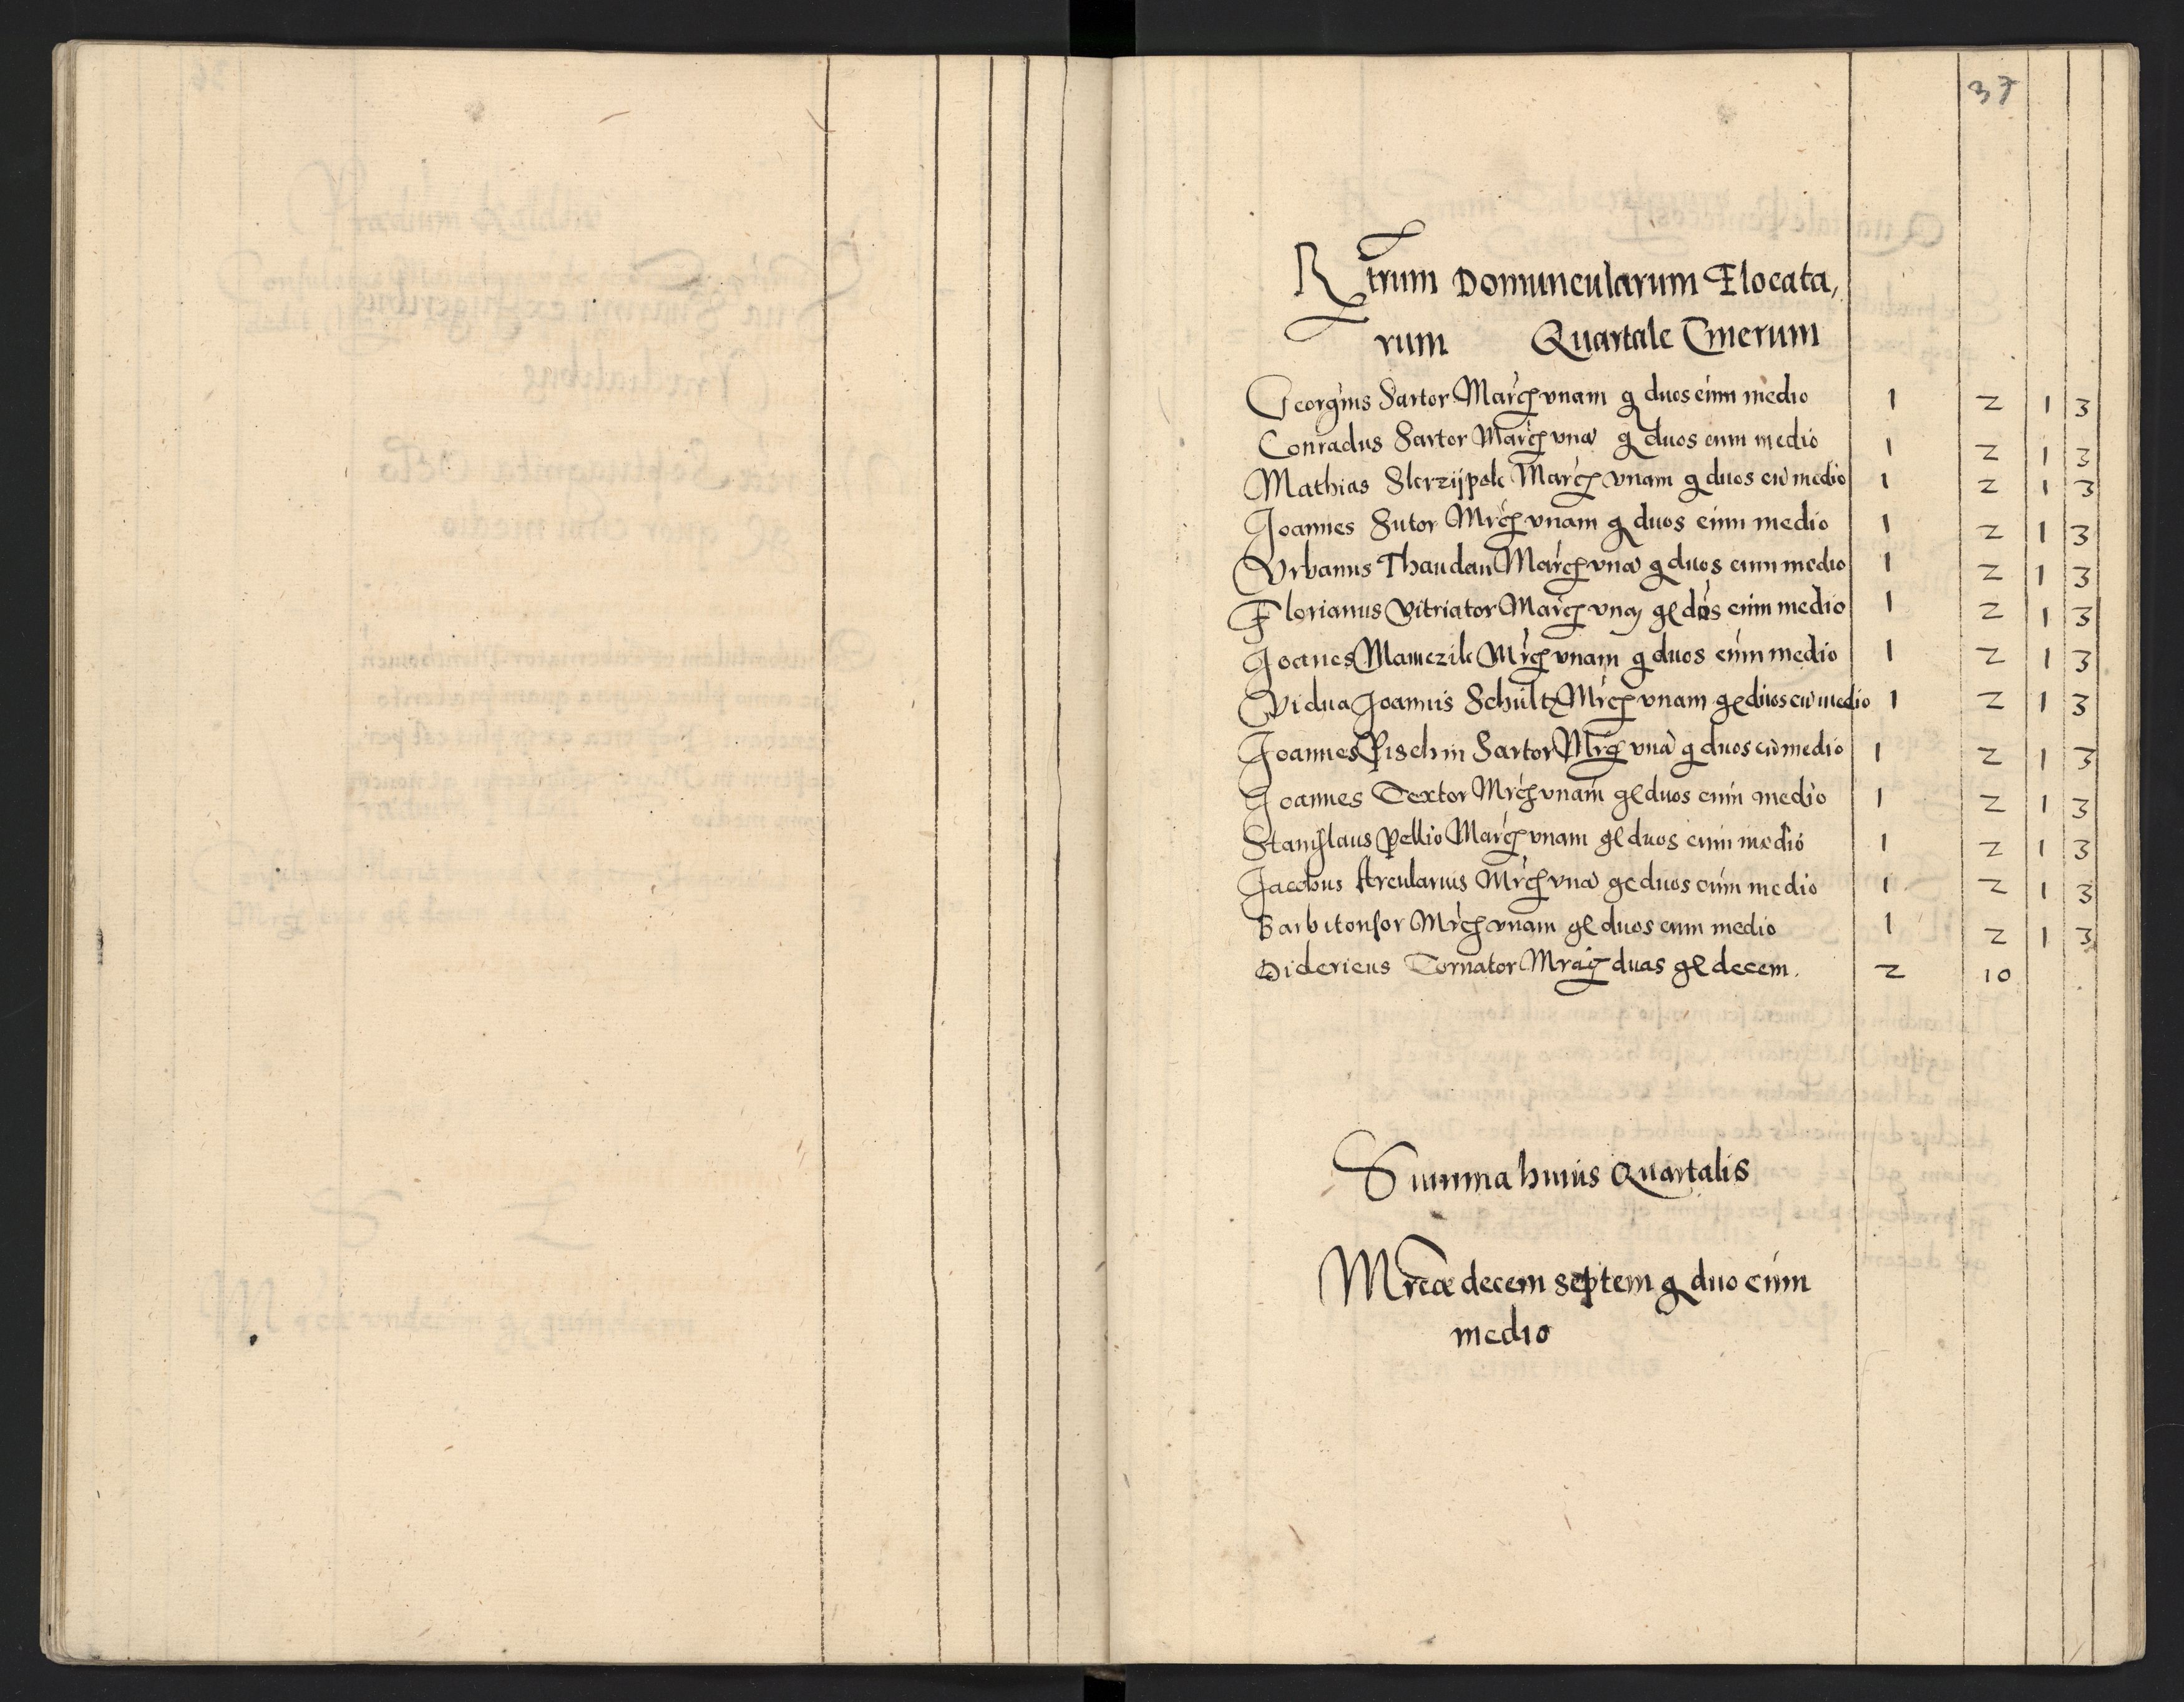 37
Rtrum Domuncularum Elocata,
rum Quartale Cinerum
Georgius Sartor Marcam vnam g duos cum medio 1 2 1 3
Conradus Sartor Marcam vnā g duos cum medio 1 2 1 3
Mathias Skrzijpek Marcam vnam g duos cū medio 1 2 1 3
Joannes Sutor Mrcam vnam g duos cum medio 1 2 1 3
Vrbanus Thaudan Marcam vnā g duos cum medio 1 2 1 3
Florianus Vitriator Marcam vnam gl duos cum medio 1 2 1 3
Joanes Mamczik Mrcam vnam g duos cum medio 1 2 1 3
Vidua Joannis Schultz Mrcam vnam gl duos cū medio 1 2 1 3
Joannes Pischin Sartor Mrcam vnā g duos cū medio 1 2 1 3
Joannes Textor Mrcam vnam gl duos cum medio 1 2 1 3
Stanislaus Pellio Marcam vnam gl duos cum medio 1 2 1 3
Jacobus Arcularius Mrcam vnā gl duos cum medio 1 2 1 3
Barbitonsor Mrcam vnam gl duos cum medio 1 2 1 3
Didericus Tornator Mrcas duas gl decem. 2 10
Summa huius Quartalis
Mrcæ decem septem g duo cum
medio